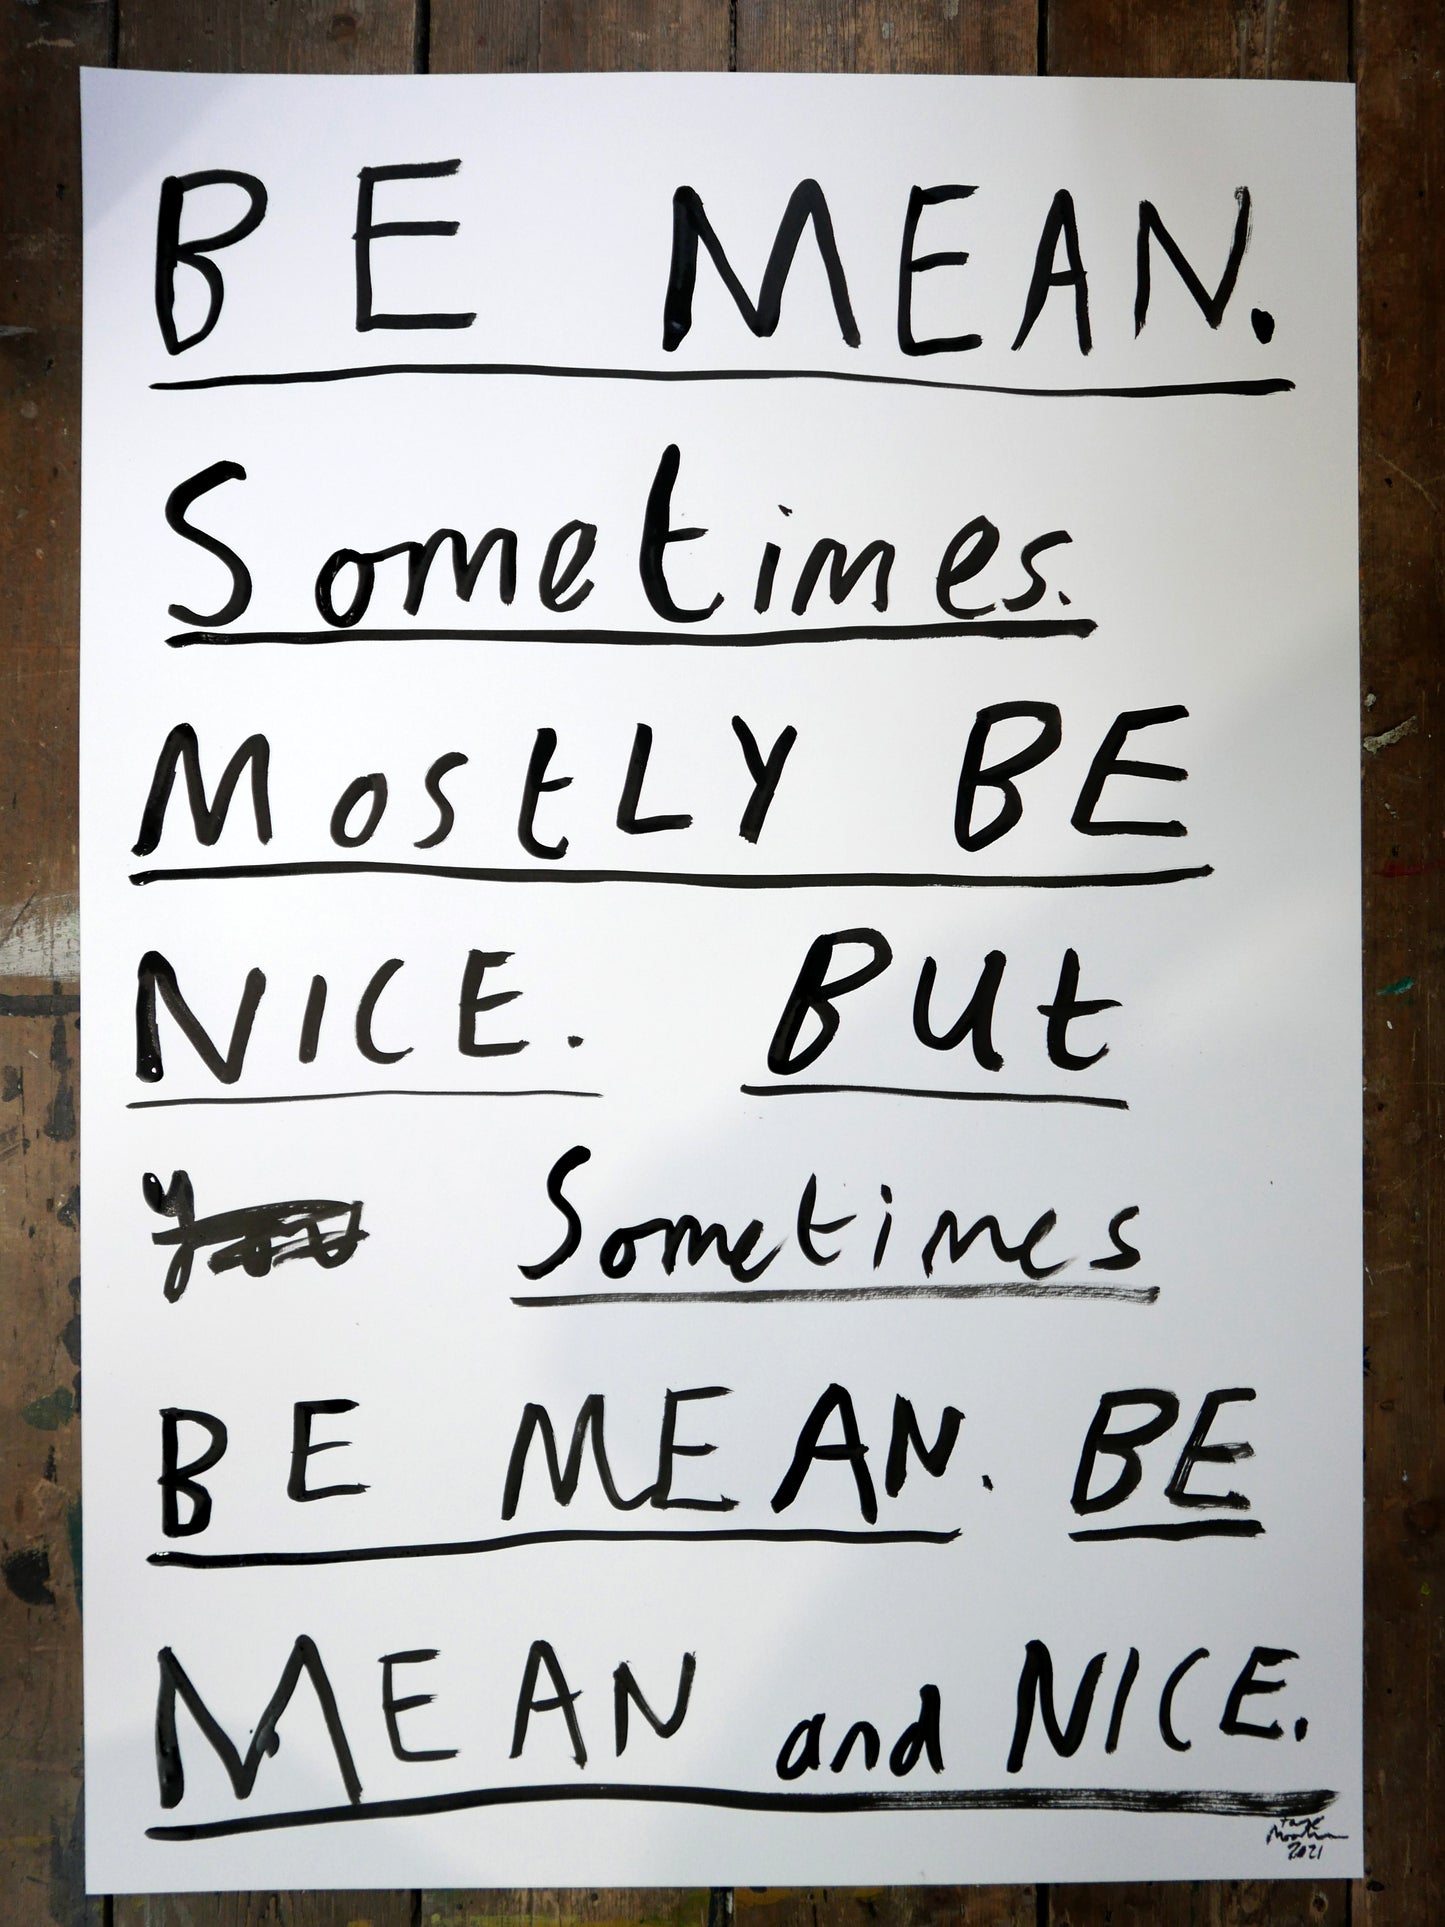 BE MEAN.
Sometimes.
MostLY BE
NICE. BUt
Sometimes
BE MEAN. BE
MEAN and NICE.
2021